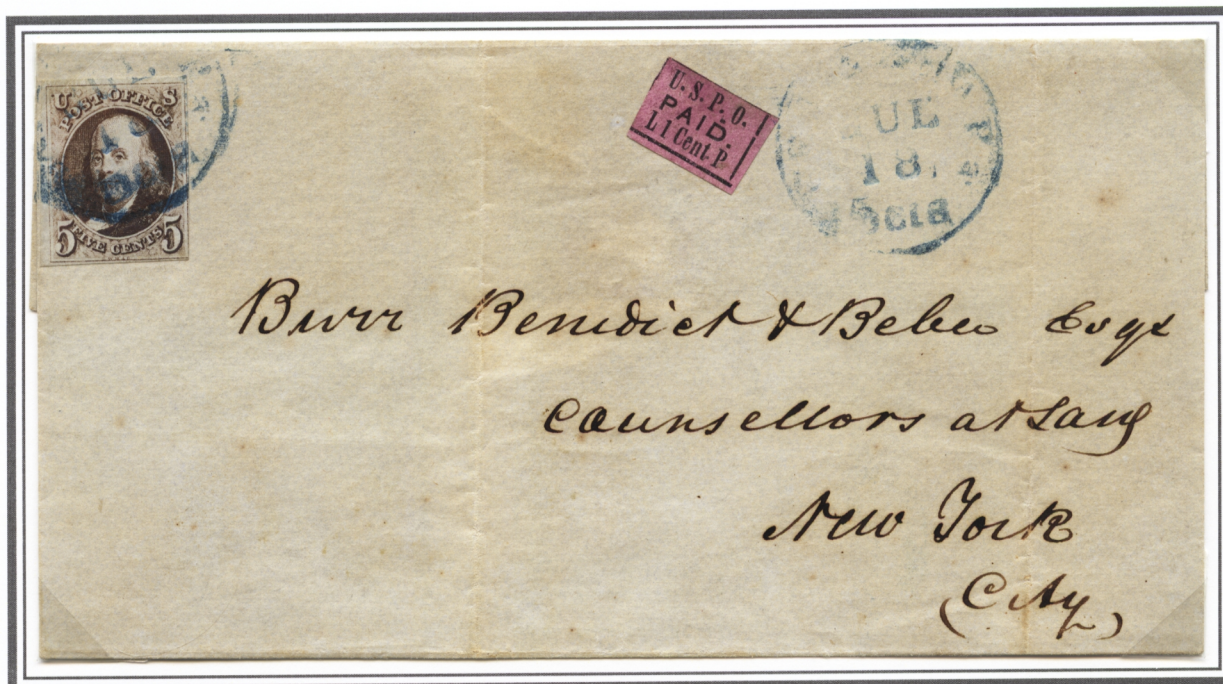 U S
POST OFFICE
5 FIVE CENTS 5
U. S. P. O.
PAID.
L 1 Cent. P
JUL
18.
5 cts
Burr Benedict & Beebe Esqs
Counsellors at Law
New York
(City)